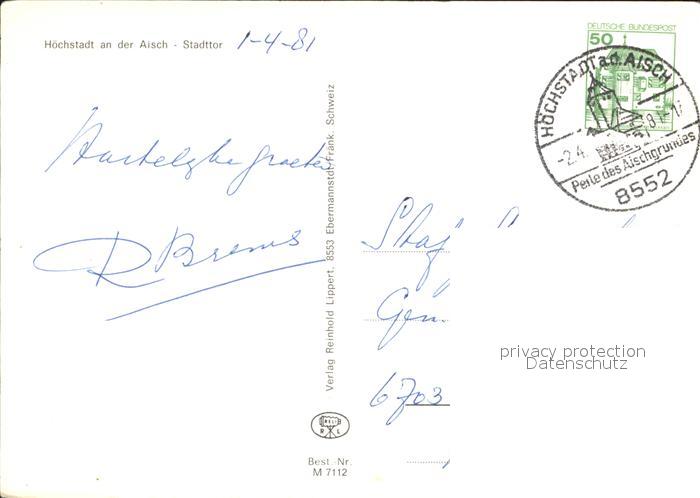 Höchstadt an der Aisch - Stadttor 1-4-81
Hartelijke groeten
R Brems
Verlag Reinhold Lippert, 8553 Ebermannstdt/Fränk. Schweiz
RELI
R L
Best.-Nr.
M 7112
DEUTSCHE BUNDESPOST
50
HÖCHSTADT a.d. AISCH
-2.4. 81-17
Perle des Aischgrundes
8552
6703
privacy protection
Datenschutz